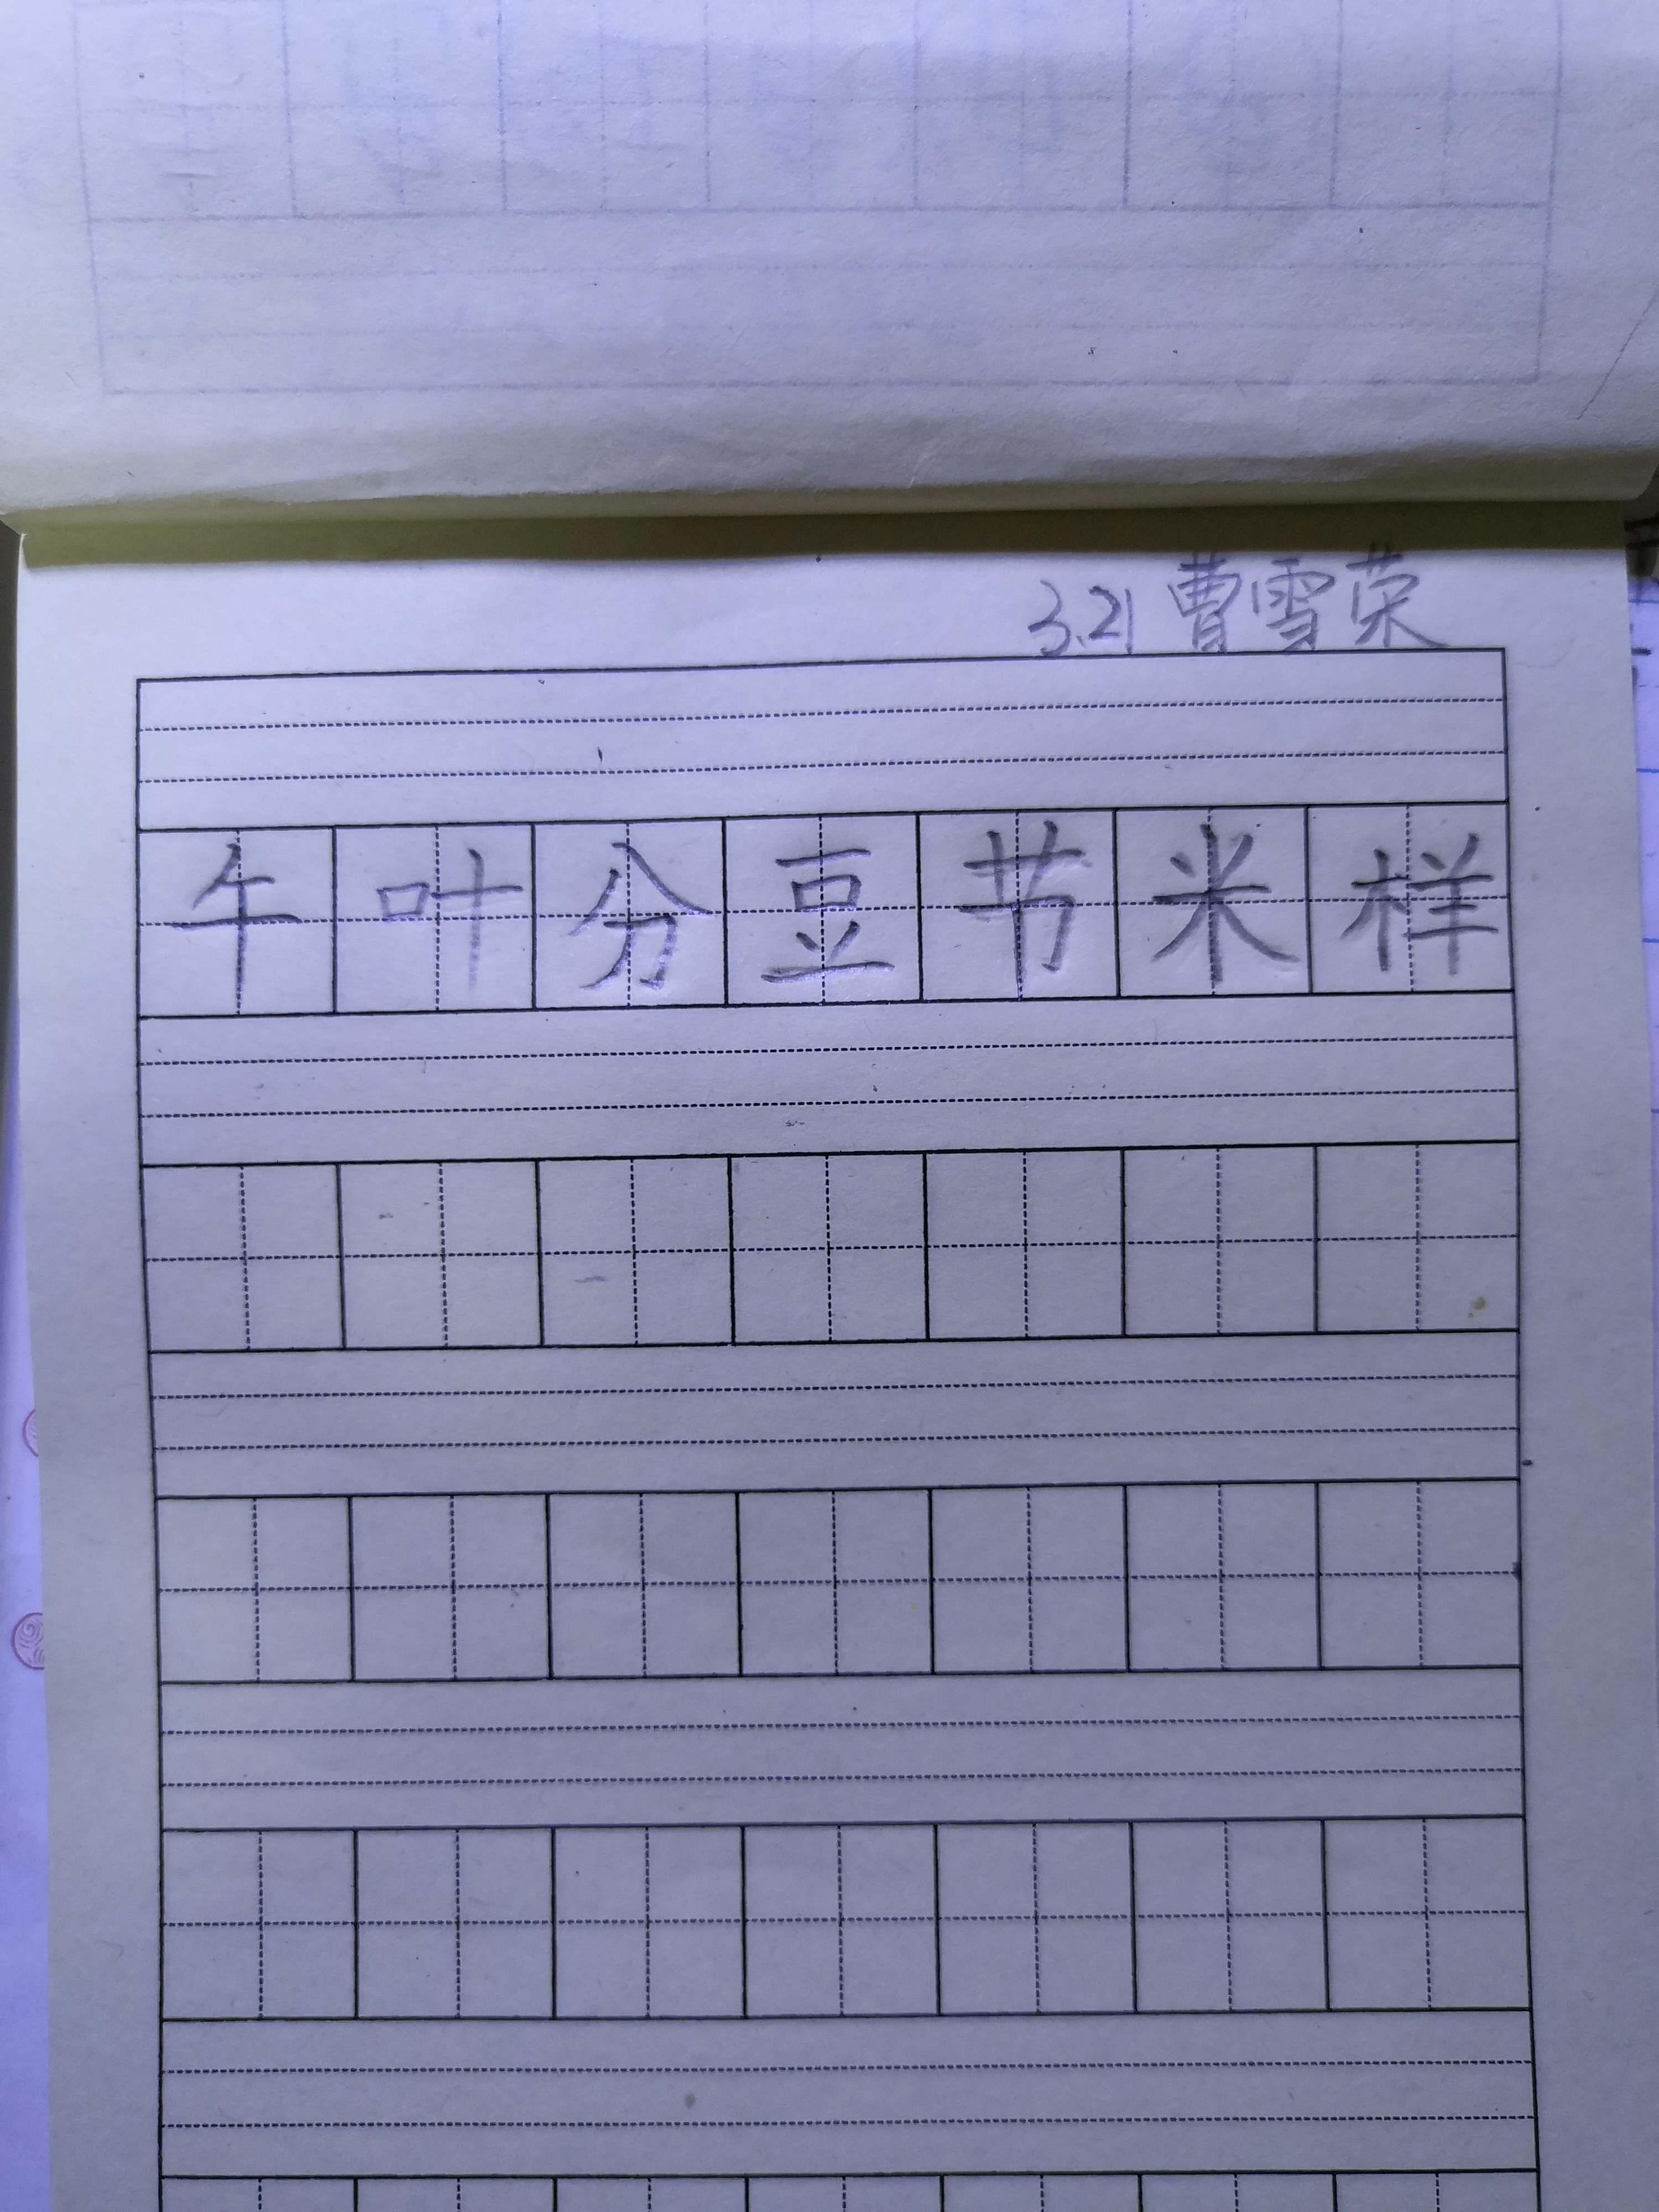 3.21 曹雪荣
午叶分豆节米样